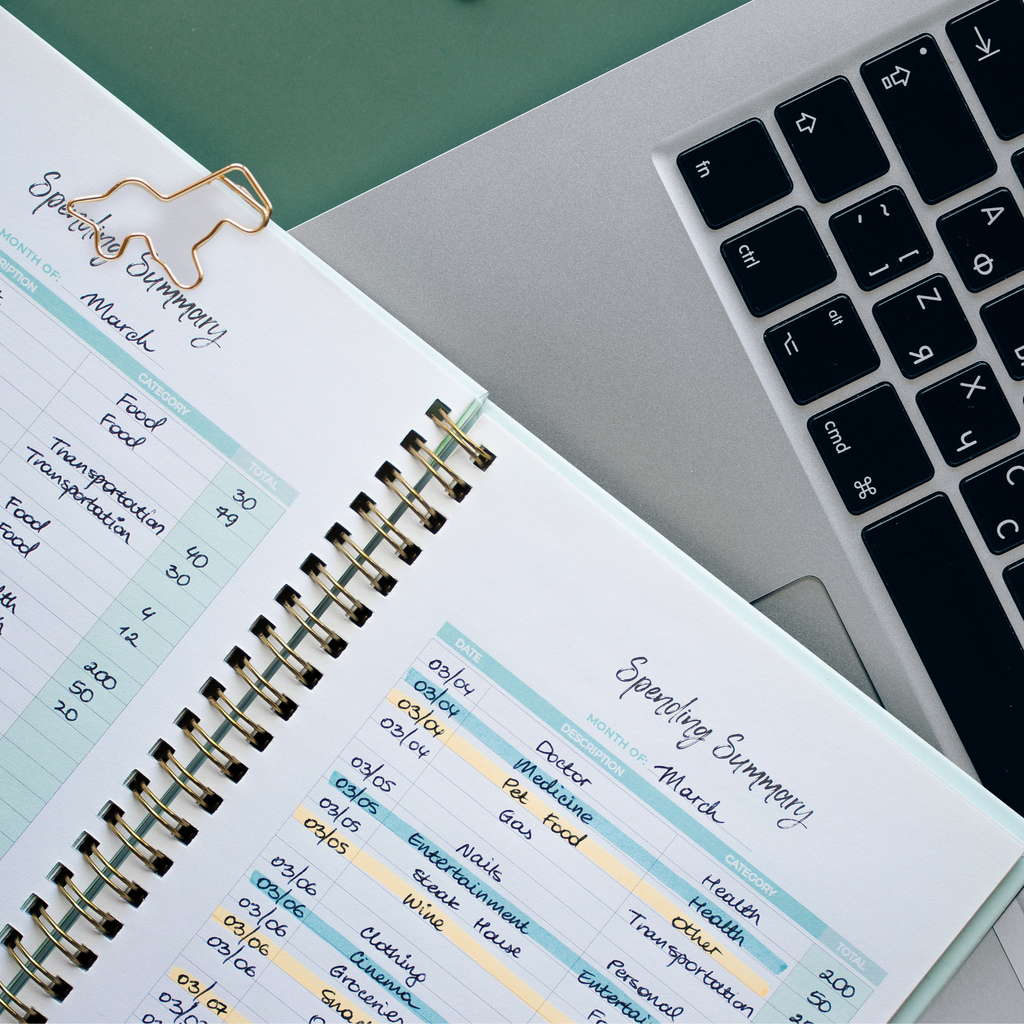 Spending Summary
MONTH OF: March
CATEGORY TOTAL
Food 30
Food 79
Transportation 40
Transportation 30
Food 4
Food 12
200
50
20
Spending Summary
MONTH OF: March
DATE DESCRIPTION CATEGORY TOTAL
03/04 Doctor Health 200
03/04 Medicine Health 50
03/04 Pet Food Other
03/04 Gas Transportation
03/05 Nails Personal
03/05 Entertainment
03/05 Steak House
03/05 Wine
03/06 Clothing
03/06 Cinema
03/06 Groceries
03/06
03/07
fn
ctrl
alt
cmd ⌘
~ [ ]
A Ф
Z Я
X Ч
C С